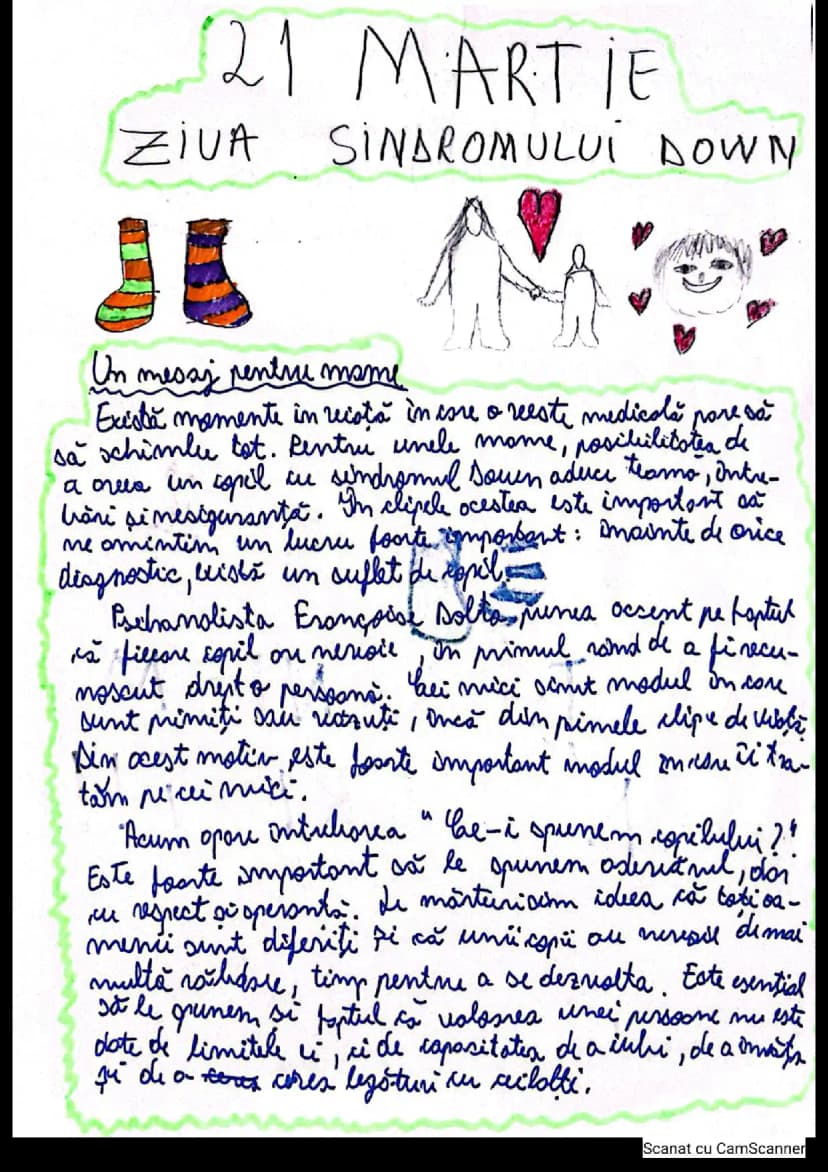 21 MARTIE
ZIUA SINDROMULUI DOWN
Un mesaj pentru mame
Există momente în viață în care o veste medicală pare să
să schimbe tot. Pentru unele mame, posibilitatea de
a avea un copil cu sindromul Down aduce teamă, între-
bări și nesiguranță. În clipele acestea este important să
ne amintim un lucru foarte important: înainte de orice
diagnostic, există un suflet de copil.
Psihanalista Françoise Dolto, punea accent pe faptul
că fiecare copil are nevoie, în primul rând de a fi recu-
noscut drept o persoană. Cei mici simt modul în care
sunt primiți sau văzuți, încă din pimele clipe de viață.
Din acest motiv, este foarte important modul în care îi tra-
tăm pe cei mici.
Acum apare întrebarea "Ce-i spunem copilului?"
Este foarte important să le spunem adevărul, dar
cu respect și speranță. Le mărturisim ideea că toți oa-
menii sunt diferiți și că unii copii au nevoie de mai
multă răbdare, timp pentru a se dezvolta. Este esențial
să le spunem și faptul că valoarea unei persoane nu este
date de limitele ei, ci de capacitatea de a iubi, de a învăța
și de a crea legături cu ceilalți.
Scanat cu CamScanner